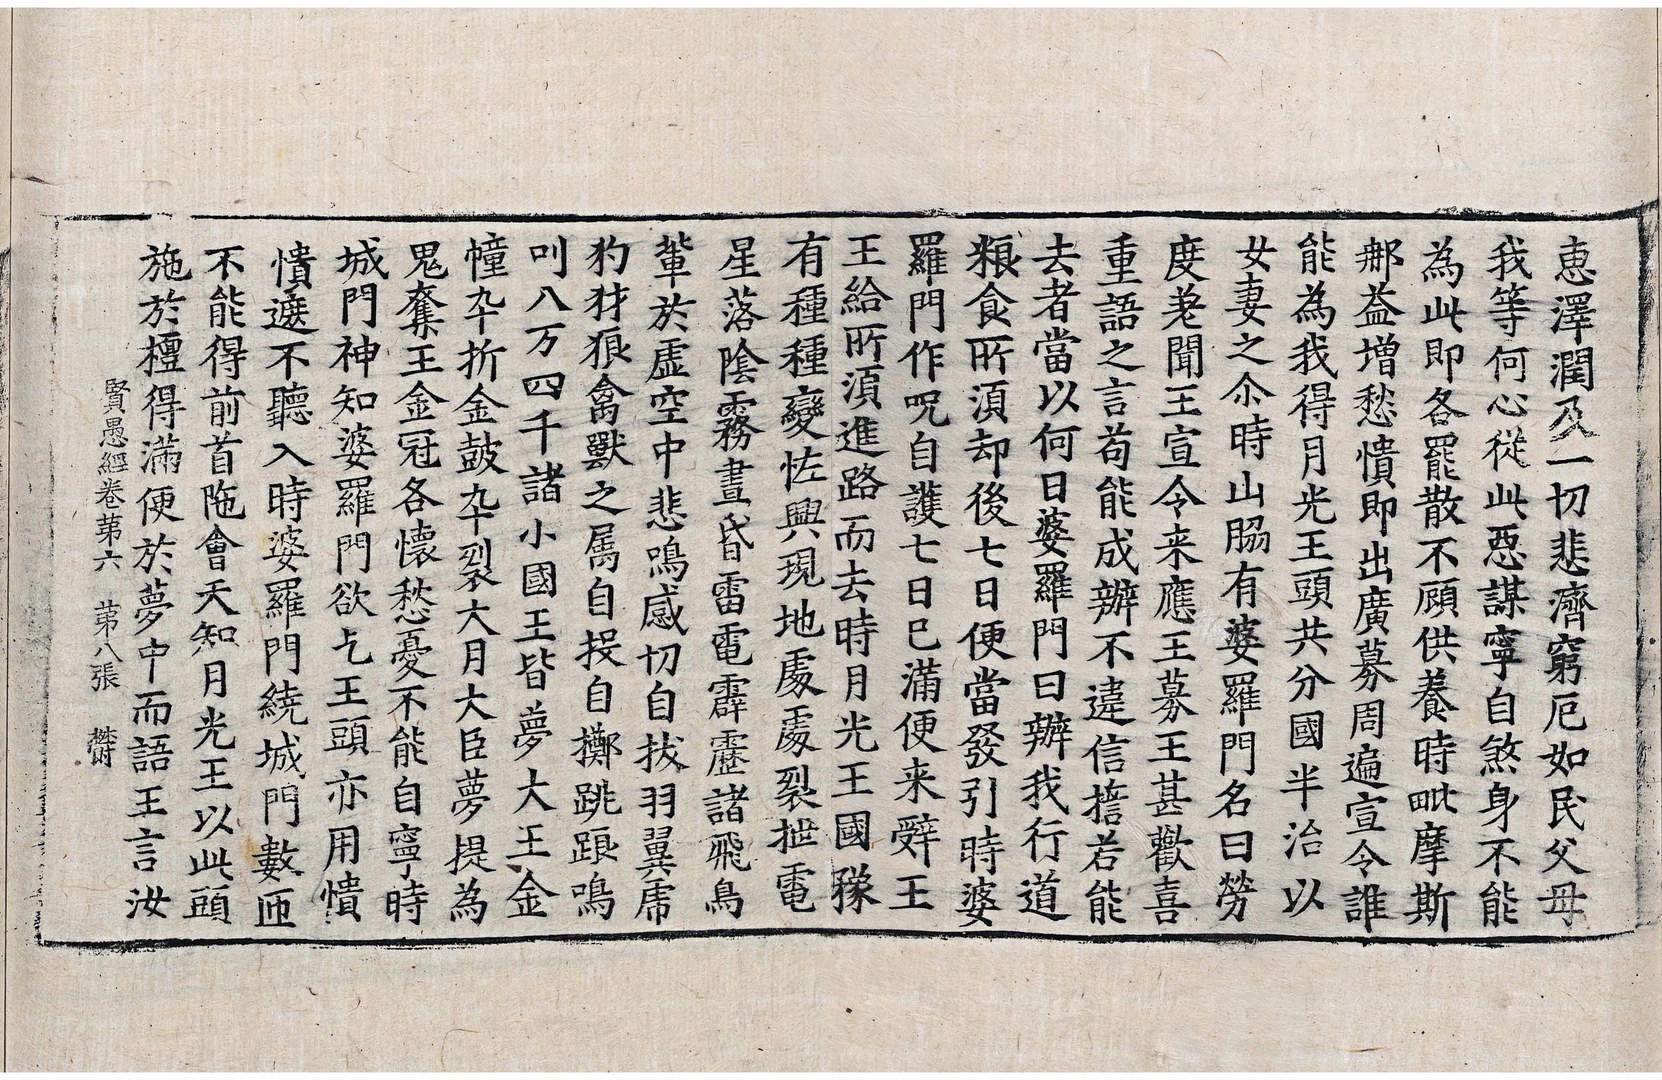 恵澤潤及一切悲濟窮厄如民父母
我等何心從此惡謀寧自煞身不能
為此即各罷散不願供養時毗摩斯
郍益增愁憒即出廣募周遍宣令誰
能為我得月光王頭共分國半治以
女妻之尒時山脇有婆羅門名曰勞
度差聞王宣令来應王募王甚歡喜
重語之言苟能成辦不違信擔若能
去者當以何日婆羅門曰辦我行道
粮食所湏却後七日便當發引時婆
羅門作呪自護七日已滿便来辤王
王給所湏進路而去時月光王國豫
有種種變恠興現地處處裂抴電
星落陰霧晝昏雷電霹靂諸飛鳥
軰於虛空中悲鳴感切自拔羽翼虎
犳犲狼禽獸之属自投自擲跳踉鳴
呌八万四千諸小國王皆夢大王金
幢卒折金鼓卒裂大月大臣夢提為
鬼奪王金冠各懷愁憂不能自寧時
城門神知婆羅門欲乞王頭亦用憒
憒遮不聽入時婆羅門繞城門數匝
不能得前首陁會天知月光王以此頭
施於檀得滿便於夢中而語王言汝
賢愚經卷第六 第八張 欝